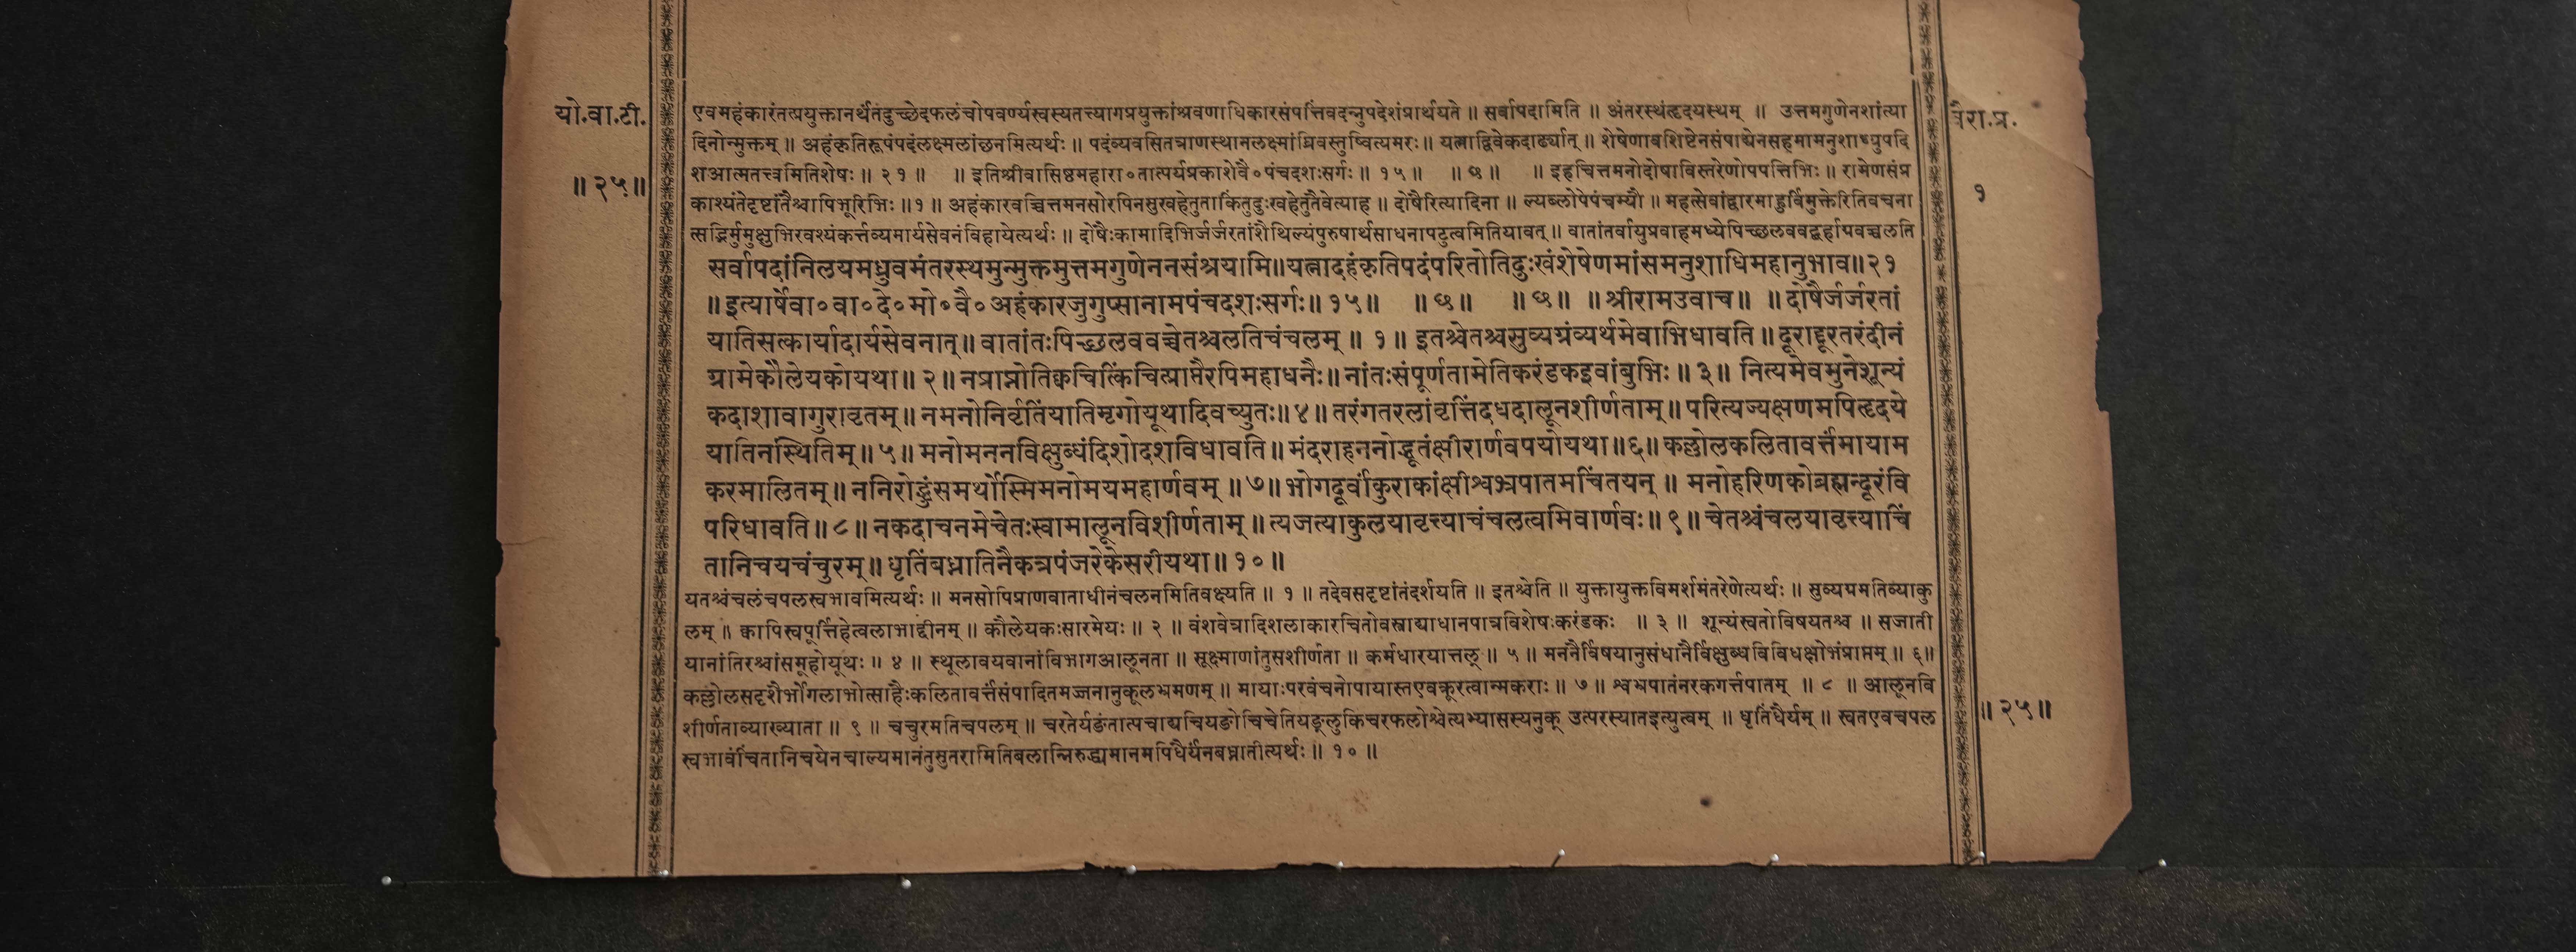 यो.वा.टी.
॥२५॥
वैरा.प्र.
१
एवमहंकारंतत्प्रयुक्तानर्थंतदुच्छेदफलंचोपवर्ण्यस्वस्यतत्त्यागप्रयुक्तांश्रवणाधिकारसंपत्तिंवदन्नुपदेशंप्रार्थयते ॥ सर्वापदामिति ॥ अंतरस्थंहृदयस्थम् ॥ उत्तमगुणेनशांत्या
दिनोन्मुक्तम् ॥ अहंकृतिरूपंपदंलक्ष्मलांछनमित्यर्थः ॥ पदंव्यवसितत्राणस्थानलक्ष्मांघ्रिवस्तुष्वित्यमरः ॥ यत्नाद्विवेकदार्ढ्यात् ॥ शेषेणावशिष्टेनसंपाद्येनसहमामनुशाध्युपदि
शआत्मतत्त्वमितिशेषः ॥ २१ ॥ ॥ इतिश्रीवासिष्ठमहारा०तात्पर्यप्रकाशेवै०पंचदशःसर्गः ॥ १५ ॥ ॥ ७ ॥ ॥ इहचित्तमनोदोषाविस्तरेणोपपत्तिभिः ॥ रामेणसंप्र
काश्यंतेदृष्टांतैश्चापिभूरिभिः ॥१॥ अहंकारवच्चित्तमनसोरपिनसुखहेतुताकिंतुदुःखहेतुतैवेत्याह ॥ दोषैरित्यादिना ॥ ल्यब्लोपेपंचम्यौ ॥ महत्सेवांद्वारमाहुर्विमुक्तेरितिवचना
त्सद्भिर्मुमुक्षुभिरवश्यंकर्त्तव्यमार्यसेवनंविहायेत्यर्थः ॥ दोषैःकामादिभिर्जर्जरतांशैथिल्यंपुरुषार्थसाधनापटुत्वमितियावत् ॥ वातांतर्वायुप्रवाहमध्येपिच्छलववद्बर्हाग्रवच्चलति
सर्वापदांनिलयमध्रुवमंतरस्थमुन्मुक्तमुत्तमगुणेननसंश्रयामि॥यत्नादहंकृतिपदंपरितोतिदुःखंशेषेणमांसमनुशाधिमहानुभाव॥२१
॥इत्यार्षेवा०वा०दे०मो०वै०अहंकारजुगुप्सानामपंचदशःसर्गः॥१५॥ ॥७॥ ॥७॥ ॥श्रीरामउवाच॥ ॥दोषैर्जर्जरतां
यातिसत्कार्यादार्यसेवनात्॥वातांतःपिच्छलववच्चेतश्चलतिचंचलम् ॥ १॥ इतश्चेतश्चसुव्यग्रंव्यर्थमेवाभिधावति॥दूराद्दूरतरंदीनं
ग्रामेकौलेयकोयथा॥२॥नप्राप्नोतिक्वचित्किंचित्प्राप्तैरपिमहाधनैः॥नांतःसंपूर्णतामेतिकरंडकइवांबुभिः॥३॥ नित्यमेवमुनेशून्यं
कदाशावागुरावृतम्॥नमनोनिर्वृतिंयातिमृगोयूथादिवच्युतः॥४॥तरंगतरलांवृत्तिंदधदालूनशीर्णताम्॥परित्यज्यक्षणमपिहृदये
यातिनस्थितिम्॥५॥मनोमननविक्षुब्धंदिशोदशविधावति॥मंदराहननोद्धूतंक्षीरार्णवपयोयथा॥६॥कल्लोलकलितावर्त्तंमायाम
करमालितम्॥ननिरोद्धुंसमर्थोस्मिमनोमयमहार्णवम्॥७॥भोगदूर्वांकुराकांक्षीश्वभ्रपातमचिंतयन्॥ मनोहरिणकोब्रह्मन्दूरंवि
परिधावति॥८॥नकदाचनमेचेतःस्वामालूनविशीर्णताम्॥त्यजत्याकुलयावृत्त्याचंचलत्वमिवार्णवः॥९॥चेतश्चंचलयावृत्त्याचिं
तानिचयचंचुरम्॥धृतिंबध्नातिनैकत्रपंजरेकेसरीयथा॥१०॥
यतश्चंचलंचपलस्वभावमित्यर्थः ॥ मनसोपिप्राणवाताधीनंचलनमितिवक्ष्यति ॥ १ ॥ तदेवसदृष्टांतंदर्शयति ॥ इतश्चेति ॥ युक्तायुक्तविमर्शमंतरेणेत्यर्थः ॥ सुव्यग्रमतिव्याकु
लम् ॥ क्वापिस्वपूर्त्तिहेत्वलाभाद्दीनम् ॥ कौलेयकःसारमेयः ॥ २ ॥ वंशवेत्रादिशलाकारचितोवस्त्राद्याधानपात्रविशेषःकरंडकः ॥ ३ ॥ शून्यंस्वतोविषयतश्च ॥ सजाती
यानांतिरश्चांसमूहोयूथः ॥ ४ ॥ स्थूलावयवानांविभागआलूनता ॥ सूक्ष्माणांतुसशीर्णता ॥ कर्मधारयात्तल् ॥ ५ ॥ मननैर्विषयानुसंधानैर्विक्षुब्धंविविधक्षोभंप्राप्तम् ॥ ६॥
कल्लोलसदृशैर्भोगलाभोत्साहैःकलितावर्त्तंसंपादितमज्जनानुकूलभ्रमणम् ॥ मायाःपरवंचनोपायास्तएवक्रूरत्वान्मकराः ॥ ७ ॥ श्वभ्रपातंनरकगर्त्तपातम् ॥ ८ ॥ आलूनवि
शीर्णताव्याख्याता ॥ ९ ॥ चंचुरमतिचपलम् ॥ चरतेर्यङंतात्पचाद्यचियङोचिचेतियङ्लुकिचरफलोश्चेत्यभ्यासस्यनुक् उत्परस्यातइत्युत्वम् ॥ धृतिंधैर्यम् ॥ स्वतएवचपल
स्वभावंचिंतानिचयेनचाल्यमानंतुसुतरामितिबलान्निरुद्ध्यमानमपिधैर्यंनबध्नातीत्यर्थः ॥ १० ॥
॥२५॥